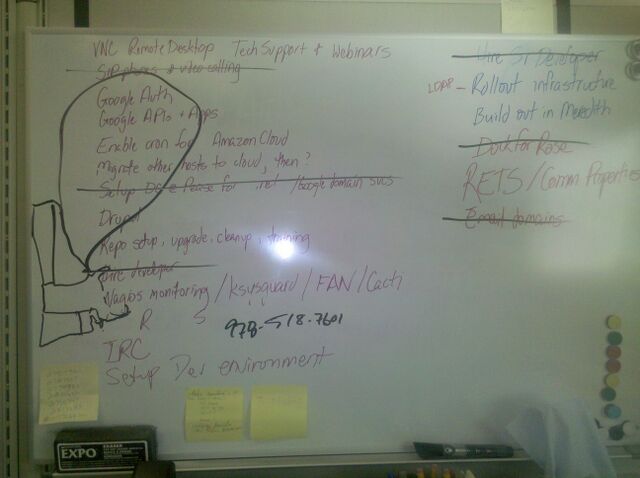 VNC Remote Desktop Tech Support + Webinars
SIP phones + video calling
Google Auth
Google APIs + Apps
Enable cron for Amazon Cloud
Migrate other hosts to cloud, then?
Setup for .net /Google domain svcs
Drupal
Repo setup, upgrade, cleanup, training
Hire developer
Nagios monitoring /ksysguard/FAN/Cacti
R S
978-518-7601
IRC
Setup Dev environment
Hire Sr Developer
LDAP - Rollout infrastructure
Build out in Meredith
Duck for Rose
RETS/Comm Properties
Email domains
EXPO
ERASER